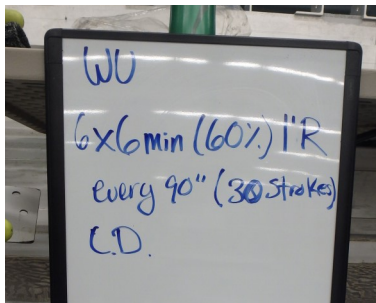 WU
6x6min (60%) 1"R
every 90" (30 Strokes)
C.D.